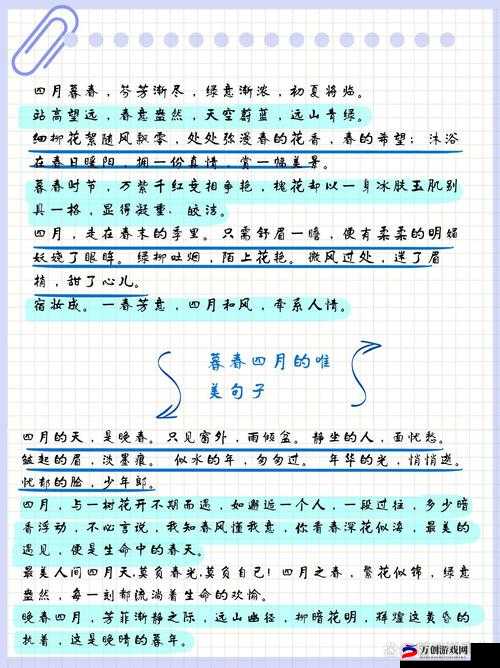 四月暮春，芬芳渐尽，绿意渐浓，初夏将临。
站高望远，春意盎然，天空蔚蓝，远山青绿。
细柳花絮随风飘零，处处弥漫春的花香，春的希望；沐浴
在春日暖阳，拥一份真情，赏一幅美景。
暮春时节，万紫千红竞相争艳，槐花却以一身冰肤玉肌别
具一格，显得凝重、皎洁。
四月，走在春末的季里。只需舒眉一瞻，便有柔柔的明媚
妖娆了眼眸。绿柳吐烟，陌上花艳。微风过处，迷了眉
梢，甜了心儿。
宿妆成。一春芳意，四月和风，牵系人情。
暮春四月的唯
美句子
四月的天，是晚春。只见窗外，雨倾盆。静坐的人，面忧愁。
皱起的眉，淡墨痕。似水的年，匆匆过。年华的光，悄悄逝。
忧郁的脸，少年郎。
四月，与一树花开不期而遇，如邂逅一个人，一段过往，多少暗
香浮动，不必言说，我知春风懂我意，你看春深花似海，最美的
遇见，便是生命中的春天。
最美人间四月天，莫负春光，莫负自己！四月之春，繁花似锦，绿意
盎然，每一刻都流淌着生命的欢愉。
晚春四月，芳菲渐静之际，远山幽径，柳暗花明，辉煌这黄昏的
执着，这是晚晴的暮年。
万创游戏网